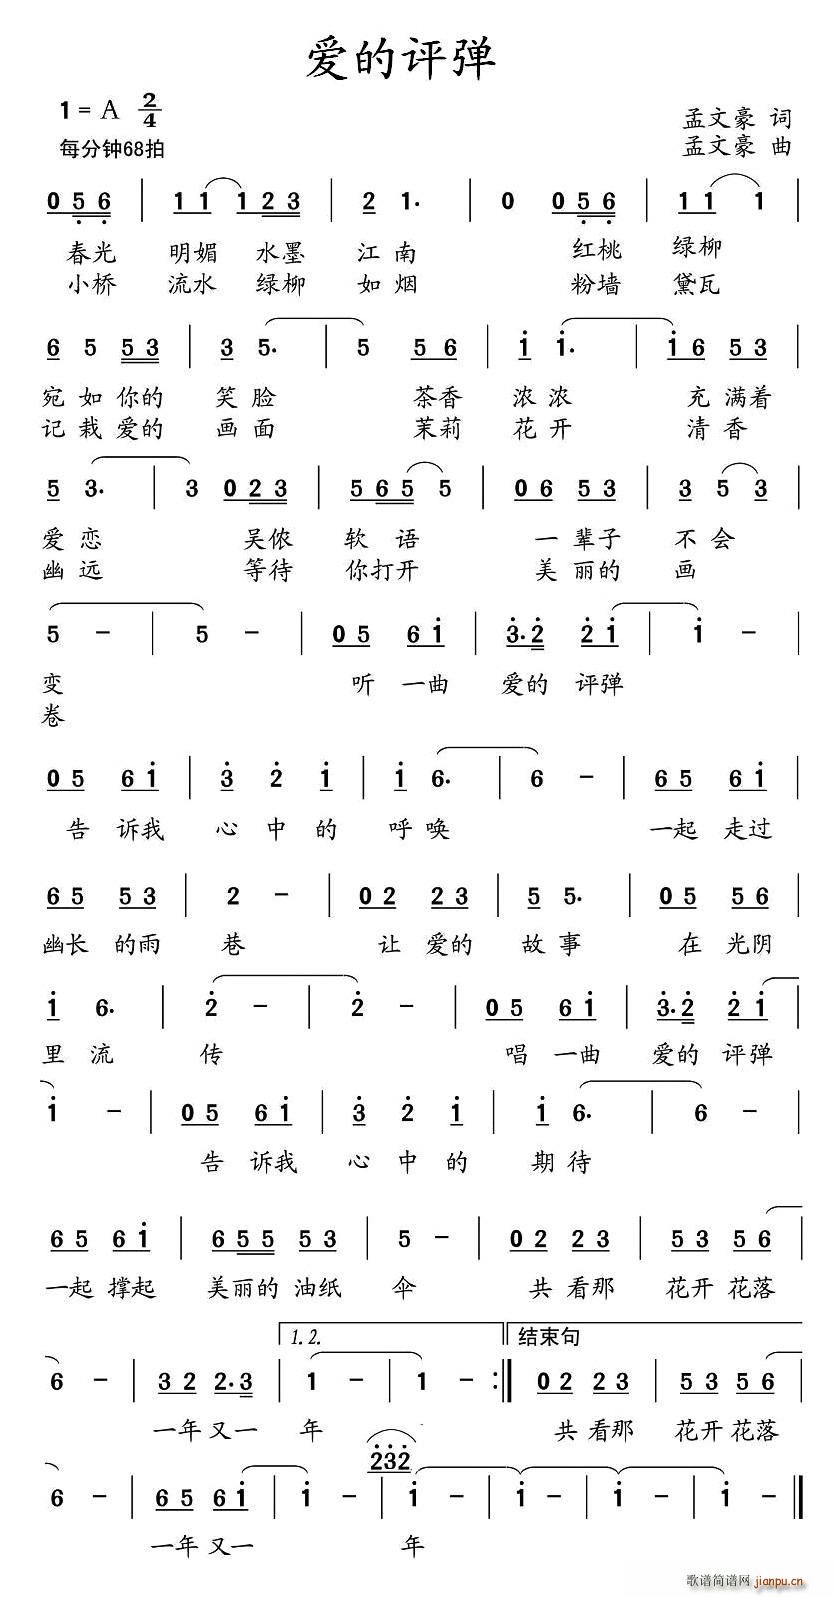 爱的评弹
1 = A 2/4
孟文豪 词
每分钟68拍
孟文豪 曲
0 5 6 | 1 1 1 2 3 | 2 1. | 0 0 5 6 | 1 1 1 |
春光 明媚 水墨 江南 红桃 绿柳
小桥 流水 绿柳 如烟 粉墙 黛瓦
6 5 5 3 | 3 5. | 5 5 6 | 1 1. | 1 6 5 3 |
宛如你的 笑脸 茶香 浓浓 充满着
记载爱的 画面 茉莉 花开 清香
5 3. | 3 0 2 3 | 5 6 5 5 | 0 6 5 3 | 3 5 3 |
爱恋 吴侬 软语 一辈子 不会
幽远 等待 你打开 美丽的 画
5 - | 5 - | 0 5 6 1 | 3. 2 2 1 | 1 - |
变 听一曲 爱的 评弹
卷
0 5 6 1 | 3 2 1 | 1 6. | 6 - | 6 5 6 1 |
告诉我 心中的 呼唤 一起 走过
6 5 5 3 | 2 - | 0 2 2 3 | 5 5. | 0 5 5 6 |
幽长 的雨 巷 让爱的 故事 在光阴
1 6. | 2 - | 2 - | 0 5 6 1 | 3. 2 2 1 |
里流 传 唱一曲 爱的 评弹
1 - | 0 5 6 1 | 3 2 1 | 1 6. | 6 - |
告诉我 心中的 期待
6 5 6 1 | 6 5 5 5 3 | 5 - | 0 2 2 3 | 5 3 5 6 |
一起 撑起 美丽的 油纸 伞 共看那 花开 花落
1. 2. 结束句
6 - | 3 2 2. 3 | 1 - | 1 - :‖ 0 2 2 3 | 5 3 5 6 |
一年又一 年 共看那 花开花落
2 3 2
6 - | 6 5 6 1 | 1 - | 1 - | 1 - | 1 - ‖
一年又一 年
歌谱简谱网 jianpu.cn